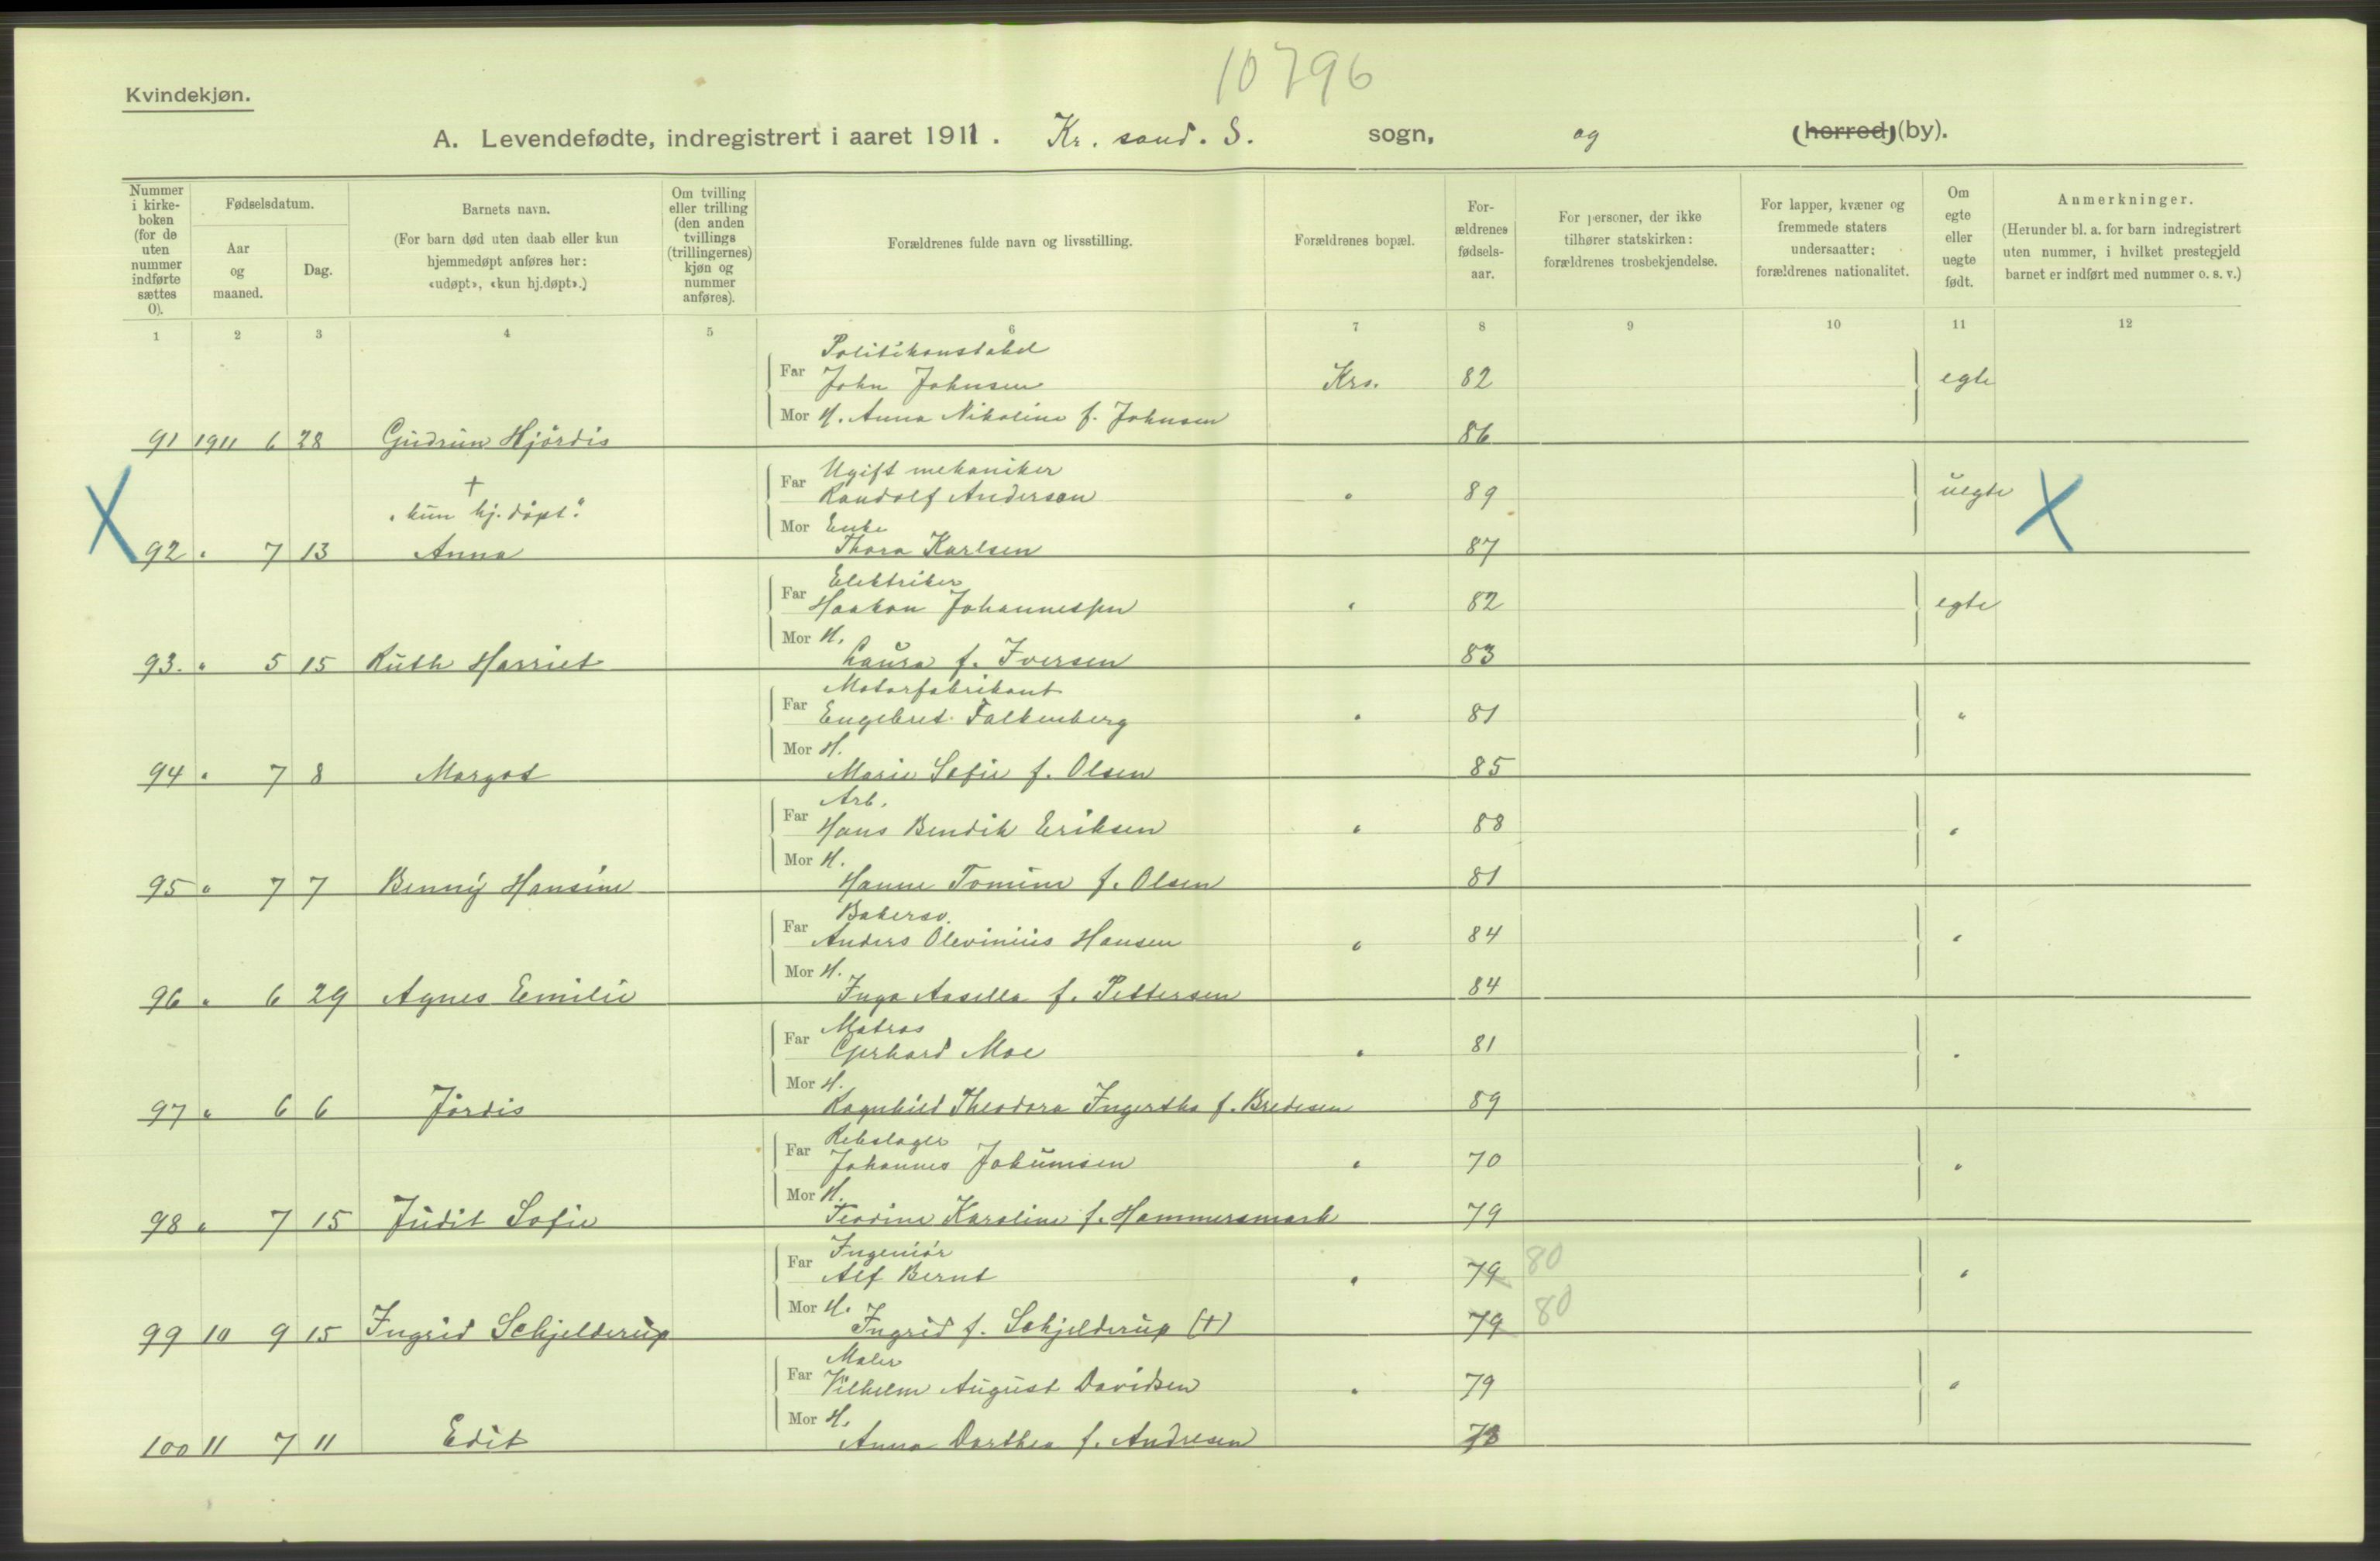 10796
Kvindekjøn.
A. Levendefødte, indregistrert i aaret 1911. Kr. sand. S. sogn, og (herred) (by).
Nummer i kirke-boken (for de uten nummer indførte sættes 0).
Fødselsdatum.
Aar og maaned.
Dag.
Barnets navn.
(For barn død uten daab eller kun hjemmedøpt anføres her: «udøpt», «kun hj.døpt».)
Om tvilling eller trilling (den anden tvillings (trillingernes) kjøn og nummer anføres).
Forældrenes fulde navn og livsstilling.
Forældrenes bopæl.
For-ældrenes fødsels-aar.
For personer, der ikke tilhører statskirken: forældrenes trosbekjendelse.
For lapper, kvæner og fremmede staters undersaatter: forældrenes nationalitet.
Om egte eller uegte født.
Anmerkninger.
(Herunder bl. a. for barn indregistrert uten nummer, i hvilket prestegjeld barnet er indført med nummer o. s. v.)
1 2 3 4 5 6 7 8 9 10 11 12
Politikonstabel
Far John Johnsen Krs. 82 egte
Mor H. Anna Nikoline f. Johnsen 86
91 1911 6 28 Gudrun Hjördis
Ugift mekaniker
Far Randolf Andersen " 89 uegte
X + "kun hj. döpt." X
Mor Enke
92 " 7 13 Anna Thora Karlsen 87
Elektriker
Far Haakon Johannessen " 82 egte
Mor H.
93. " 5 15 Ruth Harriet Laura f. Iversen 83
Motorfabrikant
Far Engebret Falkenberg " 81 "
Mor H.
94 " 7 8 Margot Marie Sofie f. Olsen 85
Arb.
Far Hans Bendik Eriksen " 88 "
Mor H.
95 " 7 7 Benny Hansine Hanne Tomine f. Olsen 81
Bakersv.
Far Anders Olevinius Hansen " 84 "
Mor H.
96 " 6 29 Agnes Emilie Inga Aasella f. Pettersen 84
Matros
Far Gerhard Moe " 81 "
Mor H.
97 " 6 6 Jördis Ragnhild Theodora Ingertha f. Bredesen 89
Rebslager
Far Johannes Jokumsen " 70 "
Mor H.
98 " 7 15 Judit Sofie Teodine Karoline f. Hammersmark 79
Ingeniör
Far Alf Bernt " 79 80 "
Mor H. Ingrid f. Schjelderup (+) 79 80
99 10 9 15 Ingrid Schjelderup
Maler
Far Vilhelm August Davidsen " 79 "
Mor H.
100 11 7 11 Edit Anna Dorthea f. Andresen